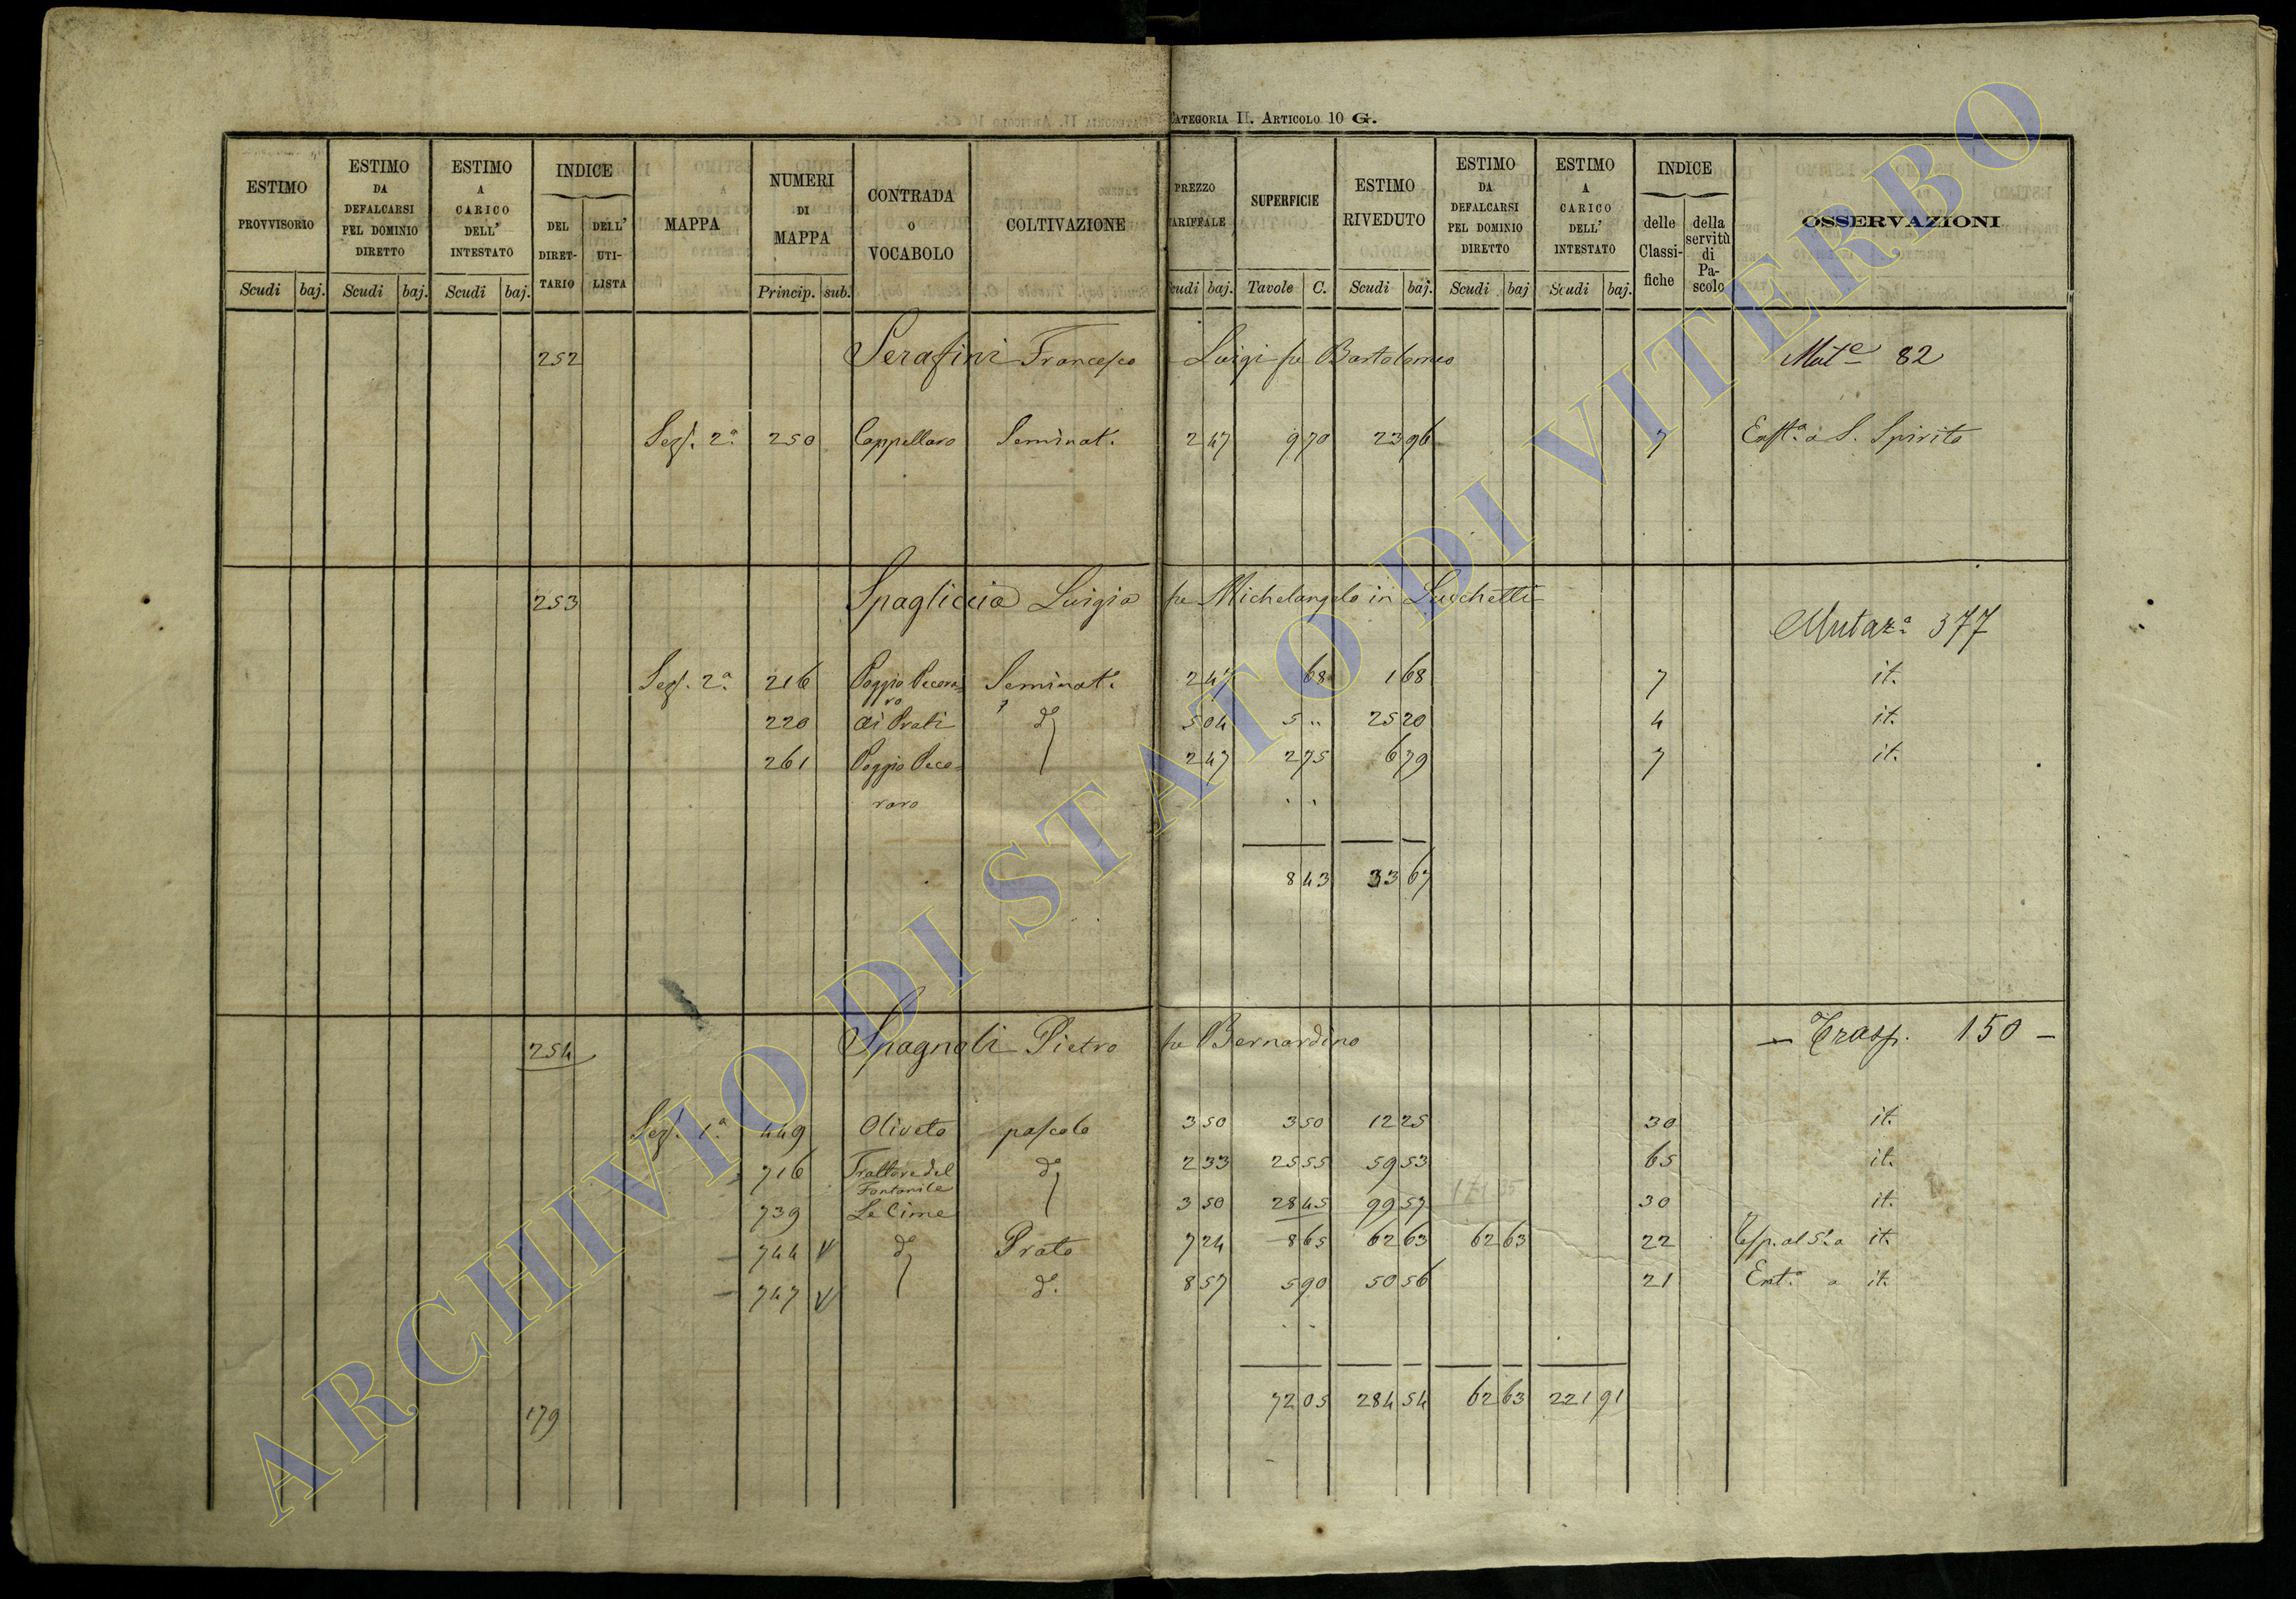 CATEGORIA II. ARTICOLO 10 G.
ESTIMO PROVVISORIO Scudi baj.
ESTIMO DA DEFALCARSI PEL DOMINIO DIRETTO Scudi baj.
ESTIMO A CARICO DELL' INTESTATO Scudi baj.
INDICE DEL DIRET-TARIO DELL' UTI-LISTA
MAPPA
NUMERI DI MAPPA Princip. sub.
CONTRADA O VOCABOLO
COLTIVAZIONE
PREZZO TARIFFALE Scudi baj.
SUPERFICIE Tavole C.
ESTIMO RIVEDUTO Scudi baj.
ESTIMO DA DEFALCARSI PEL DOMINIO DIRETTO Scudi baj
ESTIMO A CARICO DELL' INTESTATO Scudi baj.
INDICE delle Classi-fiche della servitù di Pa-scolo
OSSERVAZIONI
252 Serafini Francesco Luigi fu Bartolomeo 82
Sez. 2ª 250 Cappellaro Seminat. 2 47 9 70 23 96 7 S. Spirito
253 Spagliccia Luigia fu Michelangelo in Lucchetti
Mutaz. 377
Sez. 2ª 216 Poggio Pecora= Seminat. 2 47 68 1 68 7 it.
ro
220 Ai Prati d° 5 04 5 " 25 20 4 it.
261 Poggio Peco= 2 47 2 75 6 79 7 it.
raro
8 43 33 67
254 Spagnoli Pietro fu Bernardino – Trasp. 150 –
Sez. 1ª 449 Oliveto pascolo 3 50 3 50 12 25 30 it.
716 Trattore del d° 2 33 25 55 59 53 65 it.
Fontanile
739 Le Cime 3 50 28 45 99 57 30 it.
– 744 V d° Prato 7 24 8 65 62 63 62 63 22 it.
– 747 V d°. 8 57 5 90 50 56 21 Ent. a it.
72 05 284 54 62 63 221 91
179
ARCHIVIO DI STATO DI VITERBO